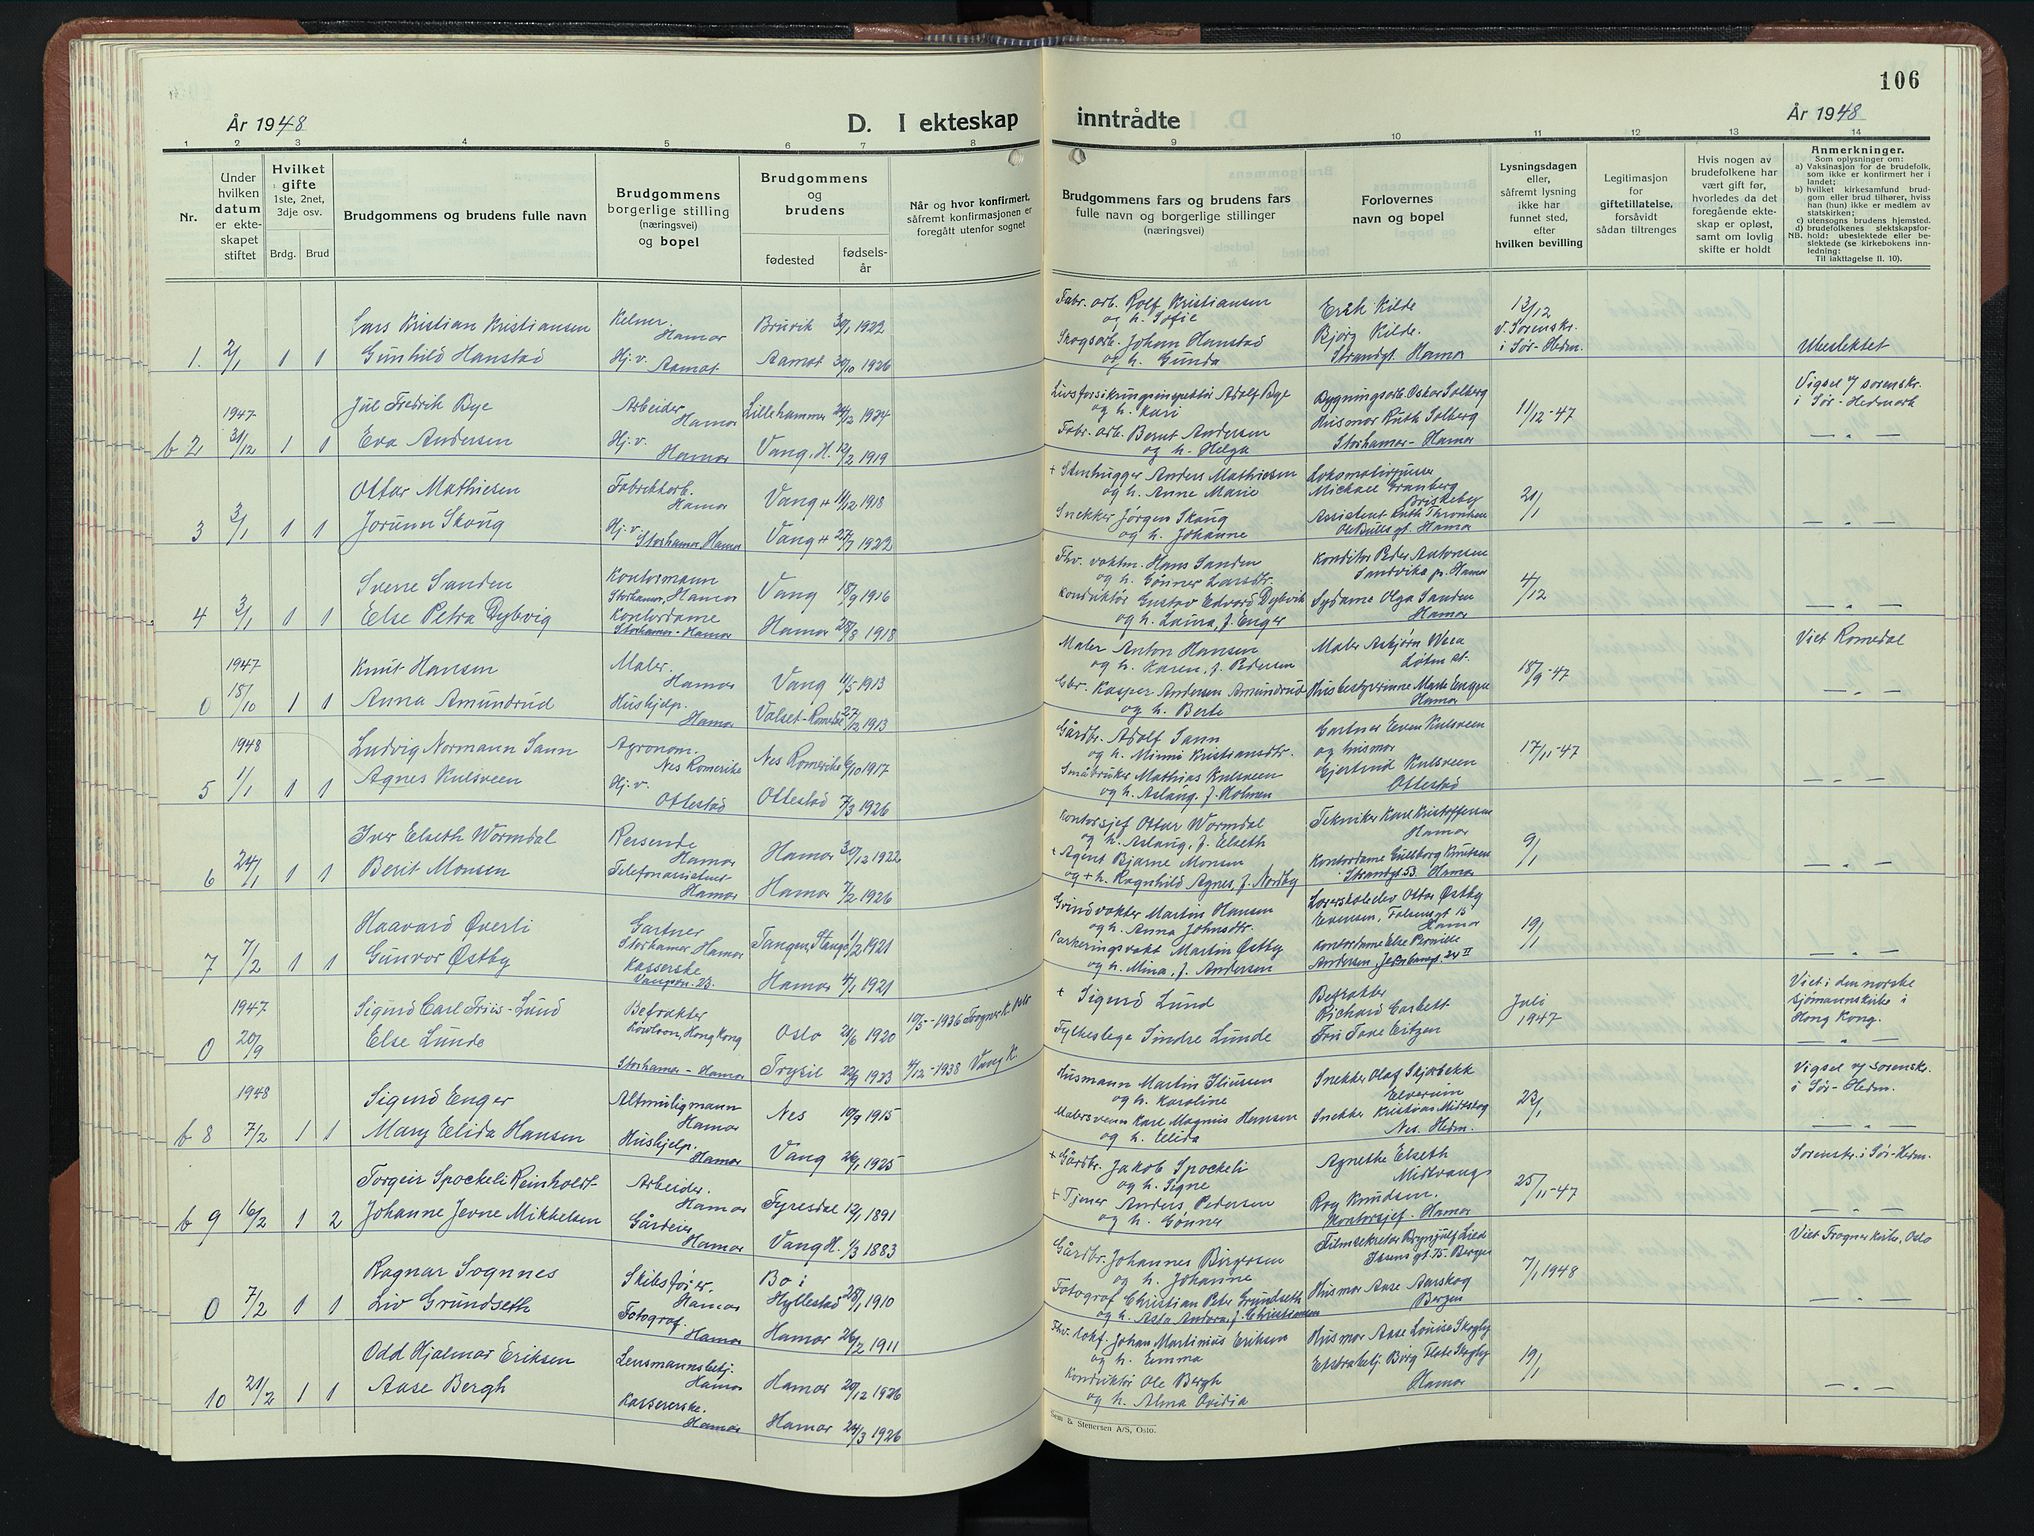 106
År 1948
D. I ekteskap inntrådte
År 1948
1 2 3 4 5 6 7 8 9 10 11 12 13 14
Nr.
Under hvilken datum er ekteskapet stiftet
Hvilket gifte
1ste, 2net, 3dje osv.
Brdg. Brud
Brudgommens og brudens fulle navn
Brudgommens borgerlige stilling (næringsvei) og bopel
Brudgommens og brudens
fødested
fødselsår
Når og hvor konfirmert, såfremt konfirmasjonen er foregått utenfor sognet
Brudgommens fars og brudens fars fulle navn og borgerlige stillinger (næringsvei)
Forlovernes navn og bopel
Lysningsdagen eller, såfremt lysning ikke har funnet sted, efter hvilken bevilling
Legitimasjon for giftetillatelse, forsåvidt sådan tiltrenges
Hvis nogen av brudefolkene har vært gift før, hvorledes da det foregående ekteskap er opløst, samt om lovlig skifte er holdt
Anmerkninger.
Som oplysninger om:
a) Vaksinasjon for de brudefolk, som ikke er konfirmert her i landet;
b) hvilket kirkesamfund brudgom eller brud tilhører, hviss han (hun) ikke er medlem av statskirken;
c) utensogns brudens hjemsted.
d) brudefolkenes slektskapsforhold: ubeslektede eller beslektede (se kirkebokens innledning;
NB.
Til iakttagelse II. 10).
1. 2/1 1 1
Lars Kristian Kristiansen
Gunhild Hanstad
Kelner. Hamar
Hj. v. Aamot
Bruvik 30/1 1922
Aamot 30/10 1926
Fabr. arb. Rolf Kristiansen
og h. Sofie
Skogsarb. Johan Hanstad
og h. Gunda
Erik Kilde
Bjørg Kilde.
Strandgt. Hamar
13/12
v. Sorenskr.
i Sør-Hedm.
Ubeslektet
1947
b 2 31/12 1 1
Jul Fredrik Bye
Eva Andersen
Arbeider Hamar
Hj. v. Hamar
Lillehammer 24/12 1924
Vang, H. 12/2 1919
Livsforsikringsinspektør Adolf Bye
og h. Kari
Fabr. arb. Bernt Andersen
og h. Helga
Bygningsarb. Oskar Solberg
Husmor Ruth Solberg
Storhamar - Hamar
11/12-47
Vigsel v/ sorenskr.
i Sør-Hedmark
— " —
3 3/1 1 1
Ottar Mathiesen
Jorunn Skaug
Fabrikkarb. Hamar
Hj. v. Storhamar, Hamar
Vang + 11/12 1918
Vang + 27/7 1922
+ Stenhugger Anders Mathiesen
og h. Anne Marie
Snekker Jørgen Skaug
og h. Johanne
Lokomotivpusser
Michael Granberg
Briskeby
Assistent Ruth Thronsen
Ole Bulls gt. Hamar
21/1
— " —
4 3/1 1 1
Sverre Sanden
Else Petra Dybvig
Kontormann
Storhamar, Hamar
Kontordame
Storhamar - Hamar
Vang 18/9 1916
Hamar 28/8 1918
Fhv. voktm. Hans Sanden
og h. Gønner Larsdtr.
Konduktør Gustav Edvard Dybvik
og h. Laura, f. Enger
Konditor Peder Antonsen
Sandvika pr. Hamar
Sydame Olga Sanden
Hamar
4/12
— " —
1947
0 18/10 1 1
Knut Hansen
Anna Amundrud
Maler. Hamar
Hushjelp. Hamar
Vang 11/5 1913
Valset-Romedal 27/12 1913
Maler Anton Hansen
og h. Karen, f. Pedersen
Gbr. Kasper Andersen Amundrud
og h. Berte
Maler Asbjørn Weea
Løten st.
Husbestyrerinne Marte Engen
Hamar
18/9-47
Viet Romedal
— " —
1948
5 1/1 1 1
Ludvig Normann Sann
Agnes Kulsveen
Agronom.
Nes Romerike
Hj. v.
Ottestad
Nes Romerike 6/10 1917
Ottestad 7/3 1926
Gårdbr. Adolf Sann
og h. Minni Kristiansdtr.
Småbruker Mathias Kulsveen
og h. Aslaug, f. Holmen
Gartner Even Kulsveen
og husmor
Gjertrud Kulsveen
Ottestad
17/11-47
— " —
6 24/1 1 1
Iver Elseth Wormdal
Berit Monsen
Reisende
Hamar
Telefonassistent
Hamar
Hamar 30/12 1922
Hamar 7/2 1926
Kontorsjef Ottar Wormdal
og h. Aslaug, f. Elseth
+ Agent Bjarne Monsen
og + h. Ragnhild Agnes, f. Nordby
Tekniker Karl Kristoffersen
Hamar
Kontordame Gullborg Knutsen
Strandgt 53 Hamar
9/1
— " —
7 7/2 1 1
Haavard Øverli
Gunvor Østby
Gartner
Storhamar, Hamar
Kasserske
Vangsvn. 23.
Tangen, Stange 1/2 1921
Hamar 4/1 1921
Grindvokter Martin Hansen
og h. Anna Johnsdtr.
Parkeringsvakt Martin Østby
og h. Mina, f. Andersen
Lærerskoleelev Ottar Østby
Evensen, Falsensgt 15
Hamar
Kontordame Else Pernille
Andersen, Jernbanegt 24 II
19/1
— " —
1947
0 20/9
Sigurd Carl Friis-Lund
Else Lunde
Befrakter
Kowloon, Hong Kong
Storhamar - Hamar
Oslo 21/6 1920
Trysil 22/9 1923
10/5-1936 Frogner K. Oslo
4/12-1938 Vang K.
+ Sigurd Lund
Fylkeslege Sindre Lunde
Befrakter
Richard Garbett
Fru Tove Eitzen
Juli
1947
Viet i den norske
sjømannskirke i
Hong Kong.
1948
b 8 7/2 1 1
Sigurd Enger
Mary Elida Hansen
Altmuligmann
Hamar
Hushjelp.
Hamar
Nes 10/9 1915
Vang 26/1 1925
Husmann Martin Iliussen
og h. Karoline
Malersvenn Karl Magnus Hansen
og h. Elida
Snekker Olaf Skjærbekk
Elverum
Snekker Kristian Midtskog
Nes. Hedm.
23/1
Vigsel v/ sorenskr.
i Sør-Hedm.
— " —
b 9 16/2 1 2
Torgeir Spockeli Reinholdt-
Johanne Jevne Mikkelsen
Arbeider.
Hamar
Gårdeier
Hamar
Fyresdal 12/1 1891
Vang H. 1/3 1883
+ Gårdbr. Jakob Spockeli
og h. Signe
+ Tjener Anders Pedersen
og h. Gønner
Agnethe Elseth
Midtvangs
Roy Knudsen.
Kontorsjef. Hamar
25/11-47
Sorenskr. i Sør-Hedm.
— " —
0 7/2 1 1
Ragnar Sognnes
Liv Grundseth
Skibsfører.
Hamar
Fotograf.
Hamar
Bø i
Hyllestad 28/1 1910
Hamar 26/2 1911
Gårdbr. Johannes Birgersen
og h. Johanne
Fotograf Christian Peter Grundseth
og h. Asta Andora, f. Christiansen
Filmsekretær Brynjulf Lied
Ibsens gt. 75. Bergen
Husmor Aase Aarskog
Bergen
7/1 1948
Viet Frogner kirke, Oslo
10 21/2 1 1
Odd Hjalmar Eriksen
Aase Bergh
Lensmannsbetj.
Hamar
Kassererske.
Hamar
Hamar 20/12 1926
Hamar 24/3 1926
Fhv. lokf. Johan Martinius Eriksen
og h. Emma
Konduktør Ole Bergh
og h. Alma Ovidia
Husmor Aase Louise Skogby
Ekstrabetj. Birg Flate Skogby
Hamar
19/1
— " —
Sem & Stenersen A/S, Oslo.